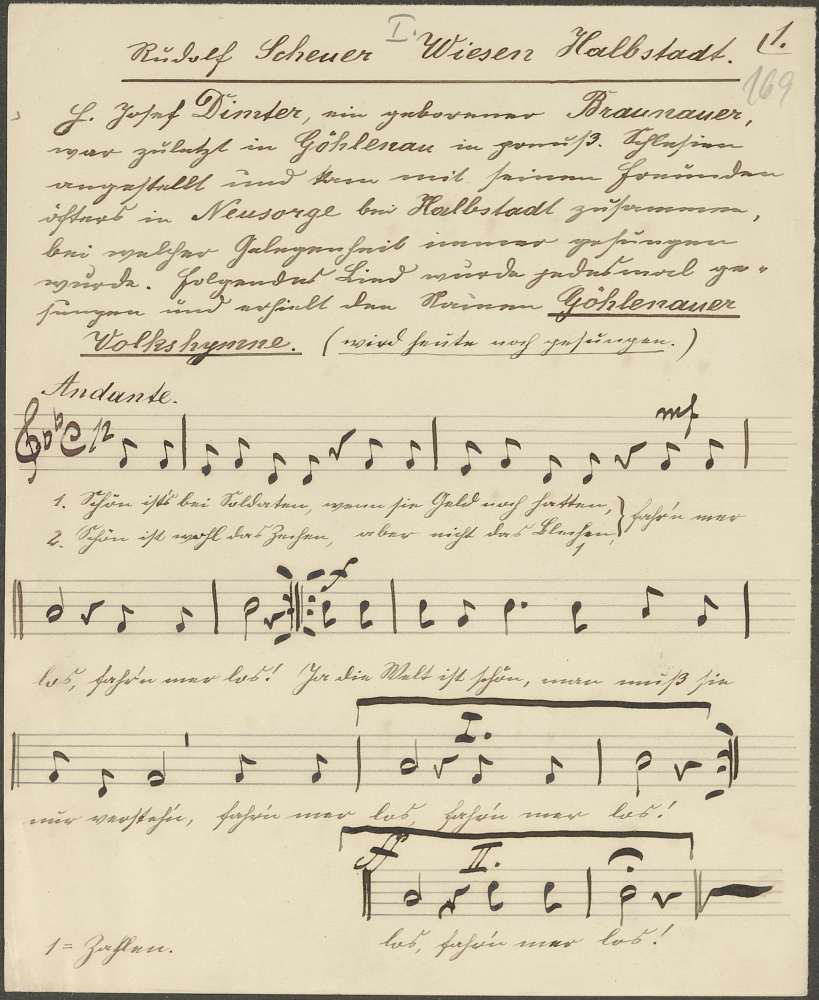 I.
Rudolf Scheuer Wiesen Halbstadt. 1.
169
H. Josef Dimter, ein geborener Braunauer,
war zuletzt in Göhlenau in preuß. Schlesien
angestellt und kam mit seinen Freunden
öfters in Neusorge bei Halbstadt zusammen,
bei welcher Gelegenheit immer gesungen
wurde. Folgendes Lied wurde jedesmal ge-
sungen und erhielt den Namen Göhlenauer
Volkshymne. (wird heute noch gesungen.)
Andante.
mf
1. Schön ist's bei Soldaten, wenn sie Geld noch hatten,
2. Schön ist wohl das Zechen, aber nicht das Blechen, 1
fahr'n mer
f
los, fahr'n mer los! Ja die Welt ist schön, man muß sie
I.
nur versteh'n, fahr'n mer los, fahr'n mer los!
ff II.
los, fahr'n mer los!
1 = Zahlen.